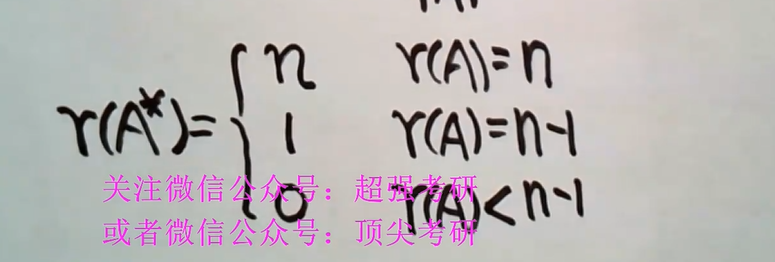 n r(A)=n
r(A*)= { 1 r(A)=n-1
0 r(A)<n-1
关注微信公众号：超强考研
或者微信公众号：顶尖考研